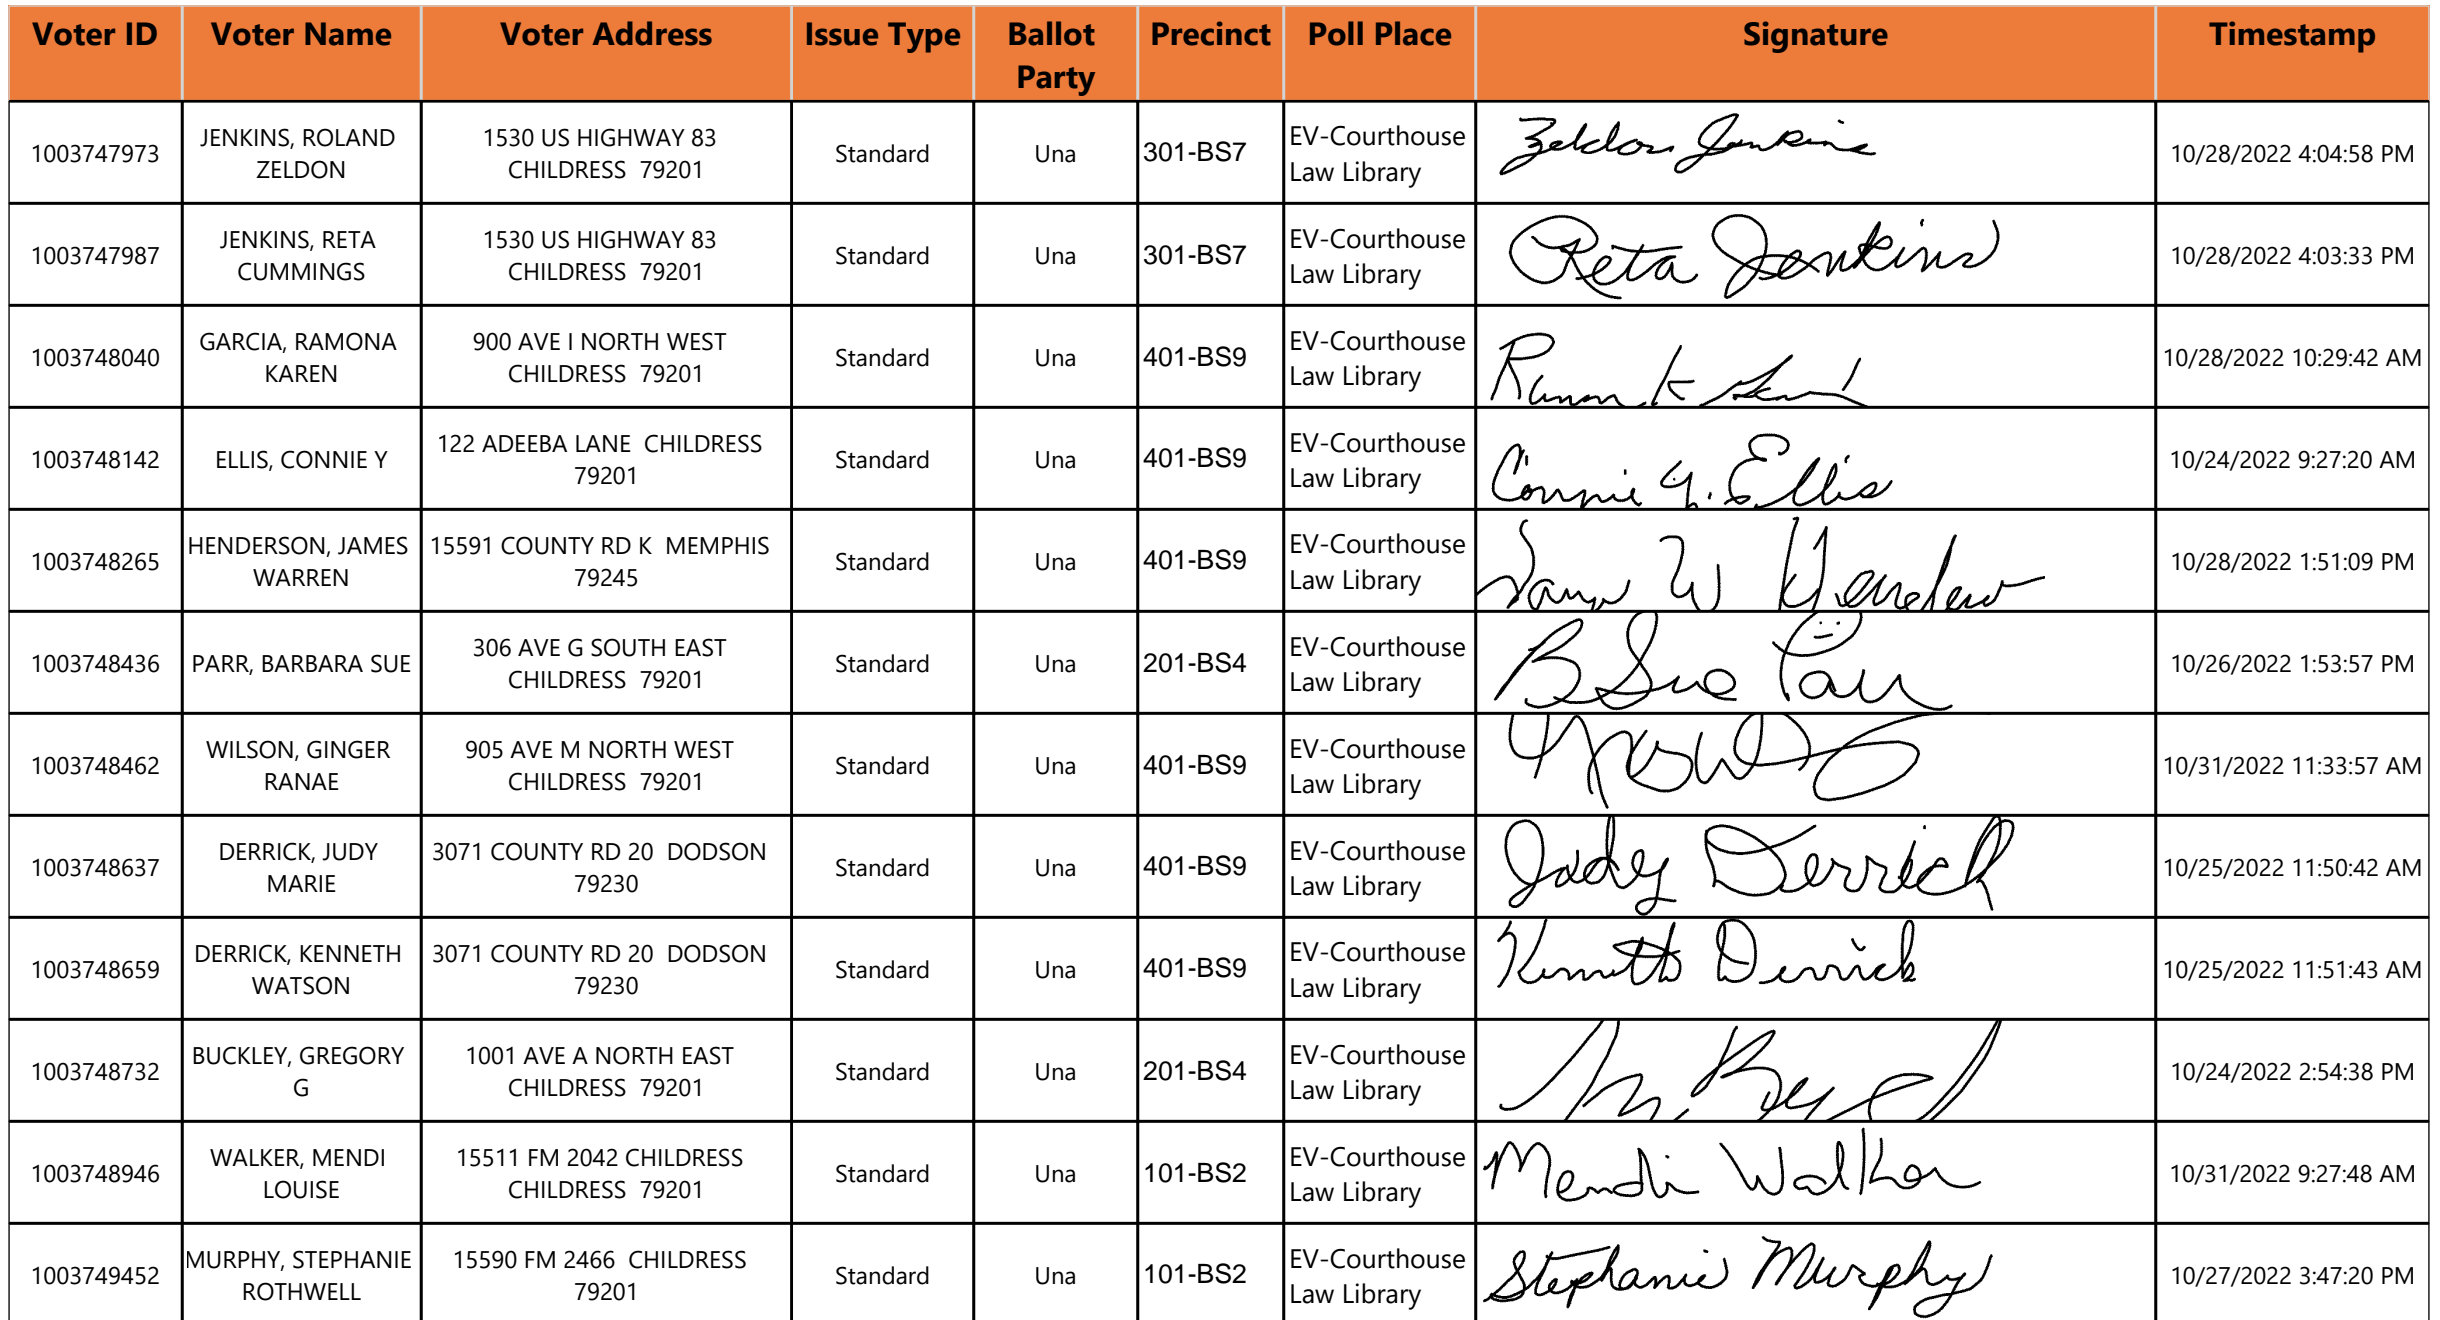 Voter ID Voter Name Voter Address Issue Type Ballot Party Precinct Poll Place Signature Timestamp
1003747973 JENKINS, ROLAND ZELDON 1530 US HIGHWAY 83 CHILDRESS 79201 Standard Una 301-BS7 EV-Courthouse Law Library Zeldon Jenkins 10/28/2022 4:04:58 PM
1003747987 JENKINS, RETA CUMMINGS 1530 US HIGHWAY 83 CHILDRESS 79201 Standard Una 301-BS7 EV-Courthouse Law Library Reta Jenkins 10/28/2022 4:03:33 PM
1003748040 GARCIA, RAMONA KAREN 900 AVE I NORTH WEST CHILDRESS 79201 Standard Una 401-BS9 EV-Courthouse Law Library 10/28/2022 10:29:42 AM
1003748142 ELLIS, CONNIE Y 122 ADEEBA LANE CHILDRESS 79201 Standard Una 401-BS9 EV-Courthouse Law Library Connie Y. Ellis 10/24/2022 9:27:20 AM
1003748265 HENDERSON, JAMES WARREN 15591 COUNTY RD K MEMPHIS 79245 Standard Una 401-BS9 EV-Courthouse Law Library James W Henderson 10/28/2022 1:51:09 PM
1003748436 PARR, BARBARA SUE 306 AVE G SOUTH EAST CHILDRESS 79201 Standard Una 201-BS4 EV-Courthouse Law Library B Sue Parr 10/26/2022 1:53:57 PM
1003748462 WILSON, GINGER RANAE 905 AVE M NORTH WEST CHILDRESS 79201 Standard Una 401-BS9 EV-Courthouse Law Library 10/31/2022 11:33:57 AM
1003748637 DERRICK, JUDY MARIE 3071 COUNTY RD 20 DODSON 79230 Standard Una 401-BS9 EV-Courthouse Law Library Judy Derrick 10/25/2022 11:50:42 AM
1003748659 DERRICK, KENNETH WATSON 3071 COUNTY RD 20 DODSON 79230 Standard Una 401-BS9 EV-Courthouse Law Library Kenneth Derrick 10/25/2022 11:51:43 AM
1003748732 BUCKLEY, GREGORY G 1001 AVE A NORTH EAST CHILDRESS 79201 Standard Una 201-BS4 EV-Courthouse Law Library 10/24/2022 2:54:38 PM
1003748946 WALKER, MENDI LOUISE 15511 FM 2042 CHILDRESS CHILDRESS 79201 Standard Una 101-BS2 EV-Courthouse Law Library Mendi Walker 10/31/2022 9:27:48 AM
1003749452 MURPHY, STEPHANIE ROTHWELL 15590 FM 2466 CHILDRESS 79201 Standard Una 101-BS2 EV-Courthouse Law Library Stephanie Murphy 10/27/2022 3:47:20 PM